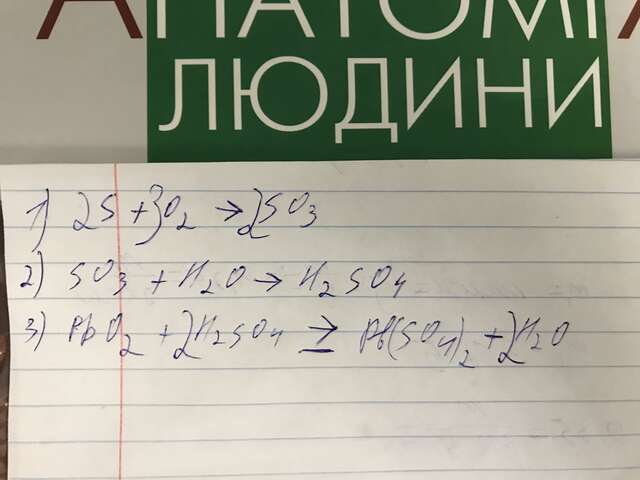 АНАТОМІ
ЛЮДИНИ
1) 2S + 3O₂ → 2SO₃
2) SO₃ + H₂O → H₂SO₄
3) PbO₂ + 2H₂SO₄ → Pb(SO₄)₂ + 2H₂O